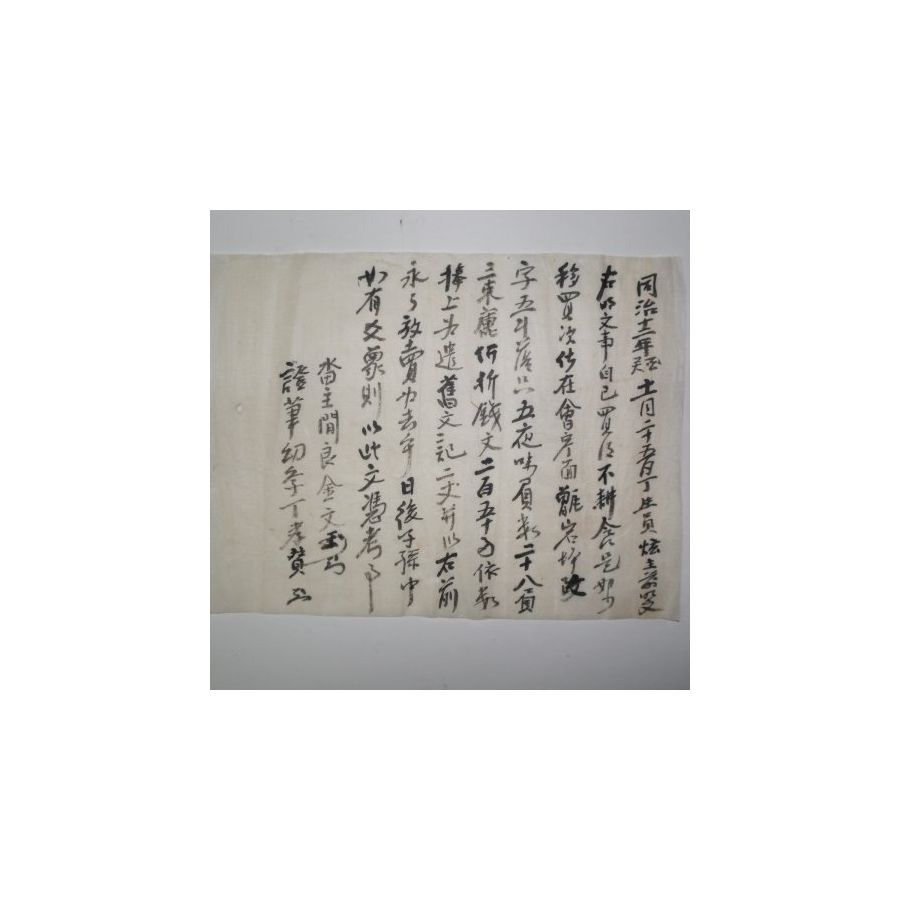 同治十二年癸酉十一月二十五日丁生員炫 主前
右明文事自己買得 不耕食是如可
移買次 伏在會寧面甑岩坪改
字五斗落只五夜味負數二十八負
三束 折錢文二百五十 依數
捧上爲遣舊文記二丈幷以右前
永永放賣 去乎日後子孫中
如有 則以此文憑考事
畓主閒良金文
證筆幼學丁孝贊